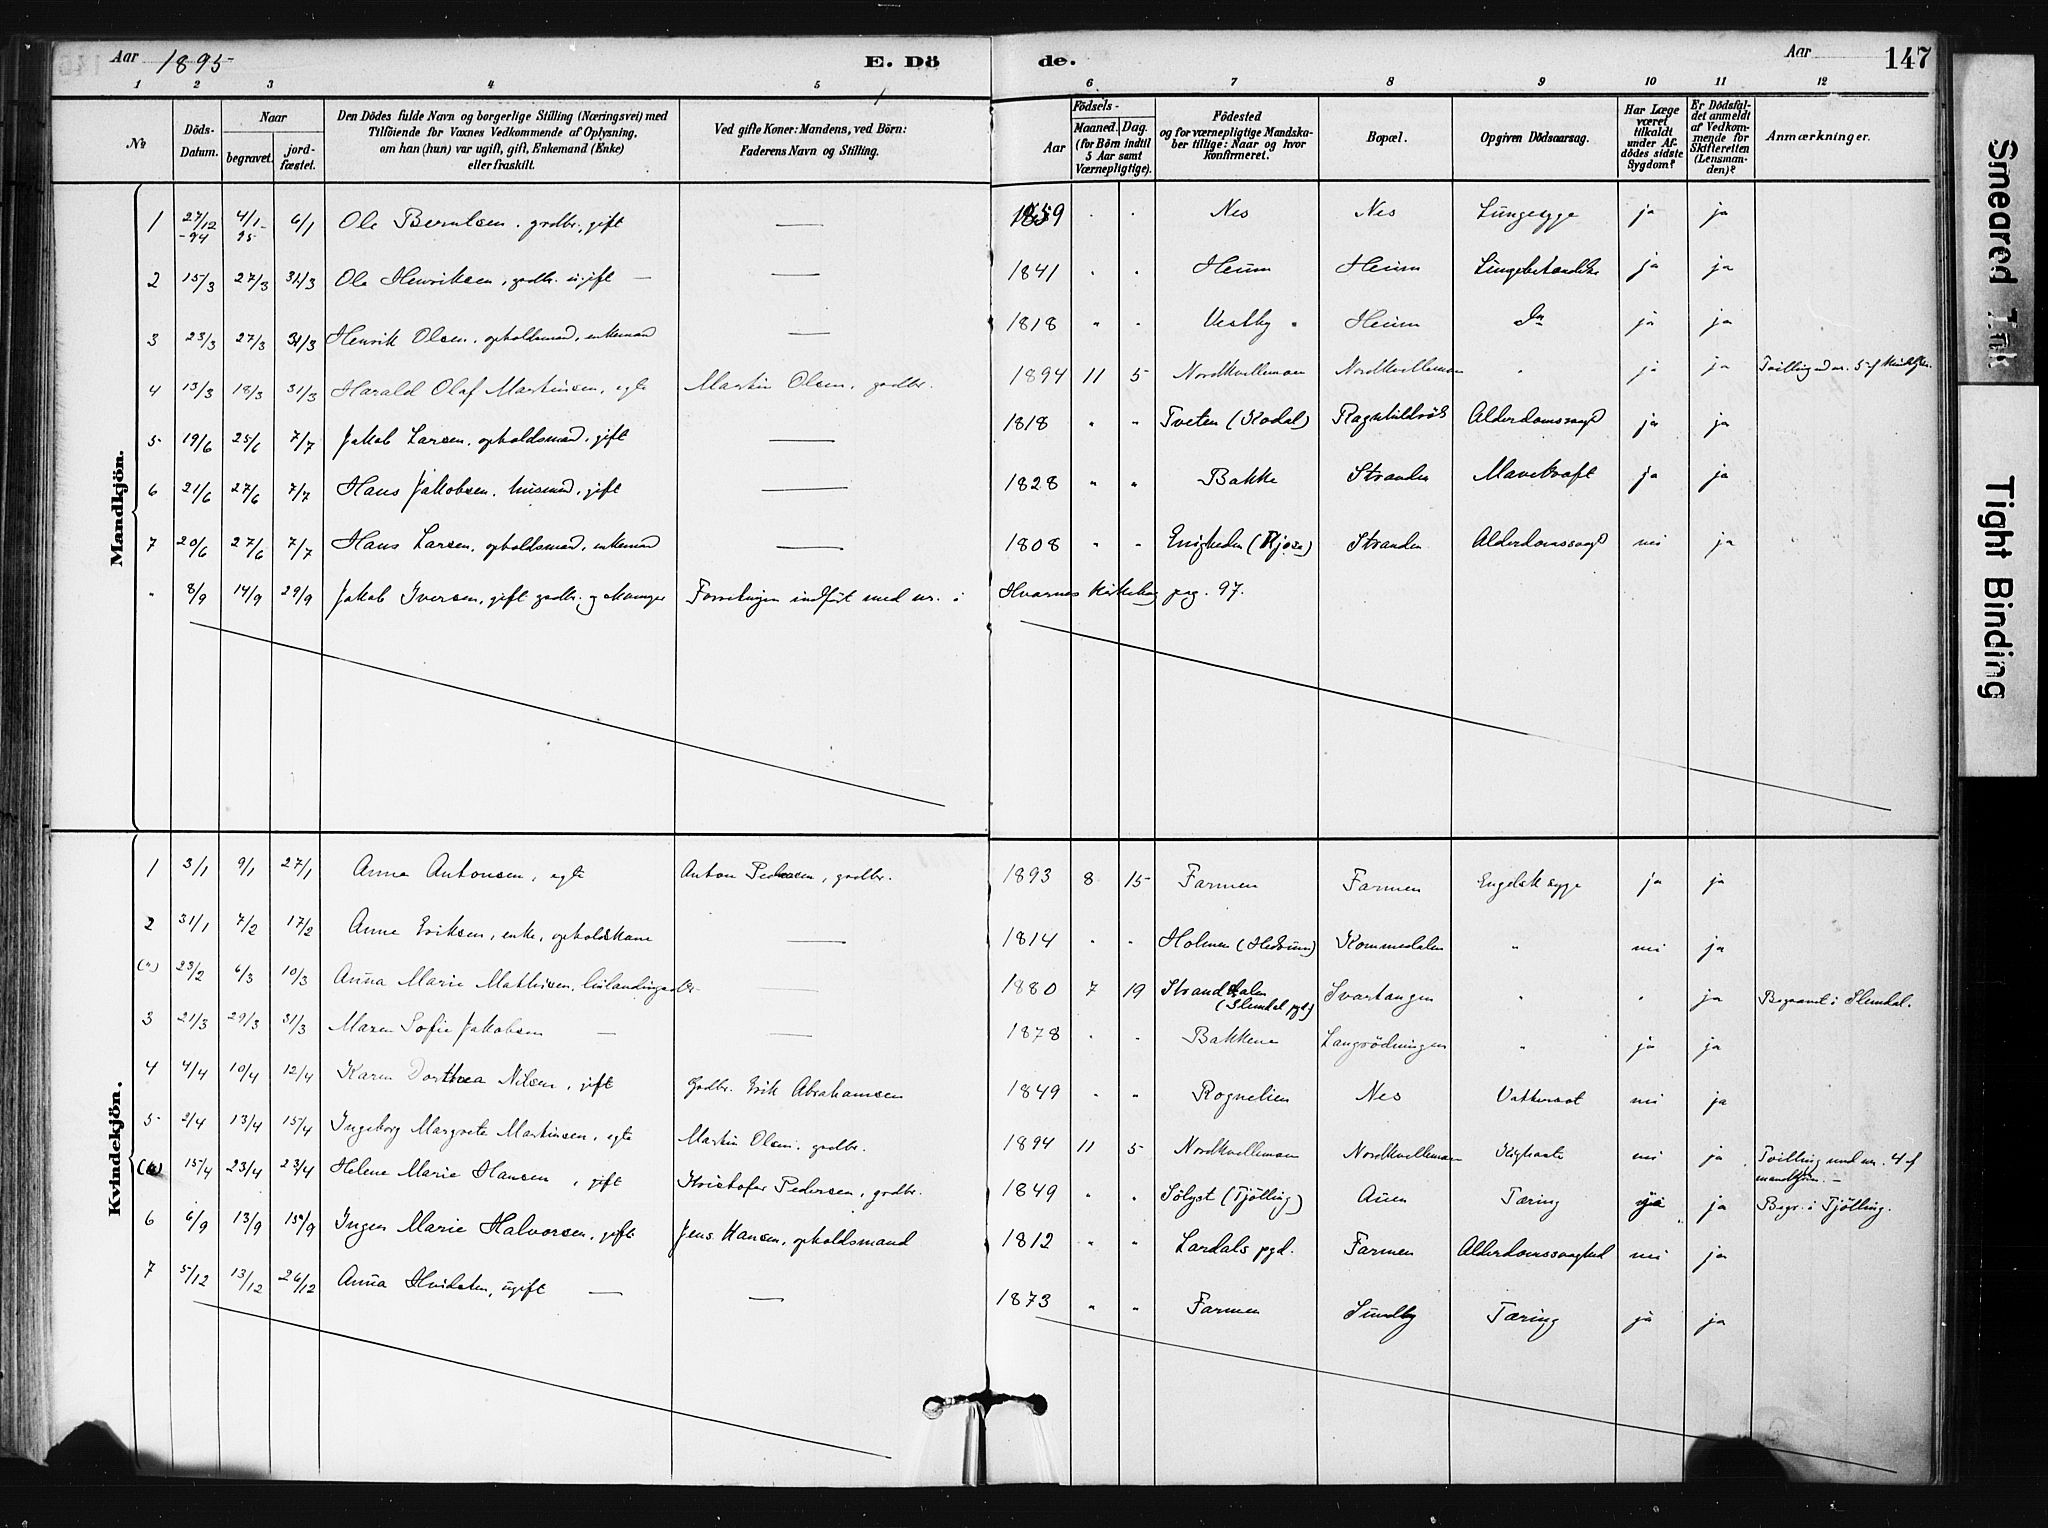 Aar 1895 E. Dö de. Aar 147
1 2 3 4 5 6 7 8 9 10 11 12
No
Döds-Datum.
Naar
begravet.
jord-fæstet.
Den Dödes fulde Navn og borgerlige Stilling (Næringsvei) med
Tilföiende for Voxnes Vedkommende af Oplysning,
om han (hun) var ugift, gift, Enkemand (Enke)
eller fraskilt.
Ved gifte Koner: Mandens, ved Börn:
Faderens Navn og Stilling.
Födsels-
Aar
Maaned. Dag.
(for Börn indtil
5 Aar samt
Værnepligtige).
Födested
og for værnepligtige Mandska-
ber tillige: Naar og hvor
konfirmeret.
Bopæl.
Opgiven Dödsaarsag.
Har Læge
været
tilkaldt
under Af-
dödes sidste
Sygdom?
Er Dödsfal-
det anmeldt
af Vedkom-
mende for
Skifteretten
(Lensman-
den)?
Anmærkninger.
Mandkjön.
1 27/12 -94 4/1 95 6/1 Ole Berntsen, grdbr., gift — 1859 " " Nes Nes Lungesyge ja ja
2 15/3 27/3 31/3 Ole Henriksen, grdbr. ugift — — 1841 " " Heum Heum Lungebetændelse ja ja
3 23/3 27/3 31/3 Henrik Olsen, opholdsmand, enkemand — 1818 " " Vestby Heum Do ja ja
4 13/3 18/3 31/3 Harald Olaf Martinsen, egte Martin Olsen, grdbr. 1894 11 5 Nordkvelleman Nordkvelleman " ja ja Tvilling med nr. 5 af
5 19/6 25/6 7/7 Jakob Larsen, opholdsmand, gift — 1818 " " Tveten (Kodal) Alderdomssvagd ja ja
6 21/6 27/6 7/7 Hans Jakobsen, husmand, gift — 1828 " " Bakke Stranden Mavekræft ja ja
7 20/6 27/6 7/7 Hans Larsen, opholdsmand, enkemand — 1808 " " Enigheden (Kjose) Stranden Alderdomssvagd nei ja
" 8/9 14/9 29/9 Jakob Iversen, gift grdbr. og Forretningen indført med nr. i Hvarnes Kirkebog pag. 97.
Kvindekjön.
1 3/1 9/1 27/1 Anna Antonsen, egte Anton Pedersen, grdbr. 1893 8 15 Farmen Farmen Engelsk syge ja ja
2 31/1 7/2 17/2 Anne Eriksen, enke, opholdskone — 1814 " " Holmen (Hedrum) Kommedalen " nei ja
(") 23/2 6/3 10/3 Anna Marie Mathisen, — 1880 7 19 Stranddalen (Slemdal pgd) Svartangen " " ja Begravet i Slemdal.
3 21/3 29/3 31/3 Maren Sofie Jakobsen — — 1878 " " Bakkene Langrødningen " ja ja
4 4/4 10/4 12/4 Karen Dorthea Nilsen, gift Grdbr. Erik Abrahamsen 1849 " " Rognelien Nes Vattersot nei ja
5 2/4 13/4 15/4 Ingeborg Margrete Martinsen, egte Martin Olsen, grdbr. 1894 11 5 Nordkvelleman Nordkvelleman Kighoste nei ja Tvilling med nr. 4 af
mandkjøn. —
(") 15/4 23/4 23/4 Helene Marie Hansen, gift Kristofer Pedersen, grdbr. 1849 " " Sølyst (Tjølling) Auen Tæring ja ja Begr. i Tjølling.
6 6/9 13/9 15/9 Ingen Marie Halvorsen, gift Jens Hansen, opholdsmand 1812 " " Lardals pgd. Farmen Alderdomssvaghed nei ja
7 5/12 13/12 26/12 Anna Hvidsten, ugift — — 1873 " " Farmen Sundby Tæring ja ja
Smeared Ink
Tight Binding